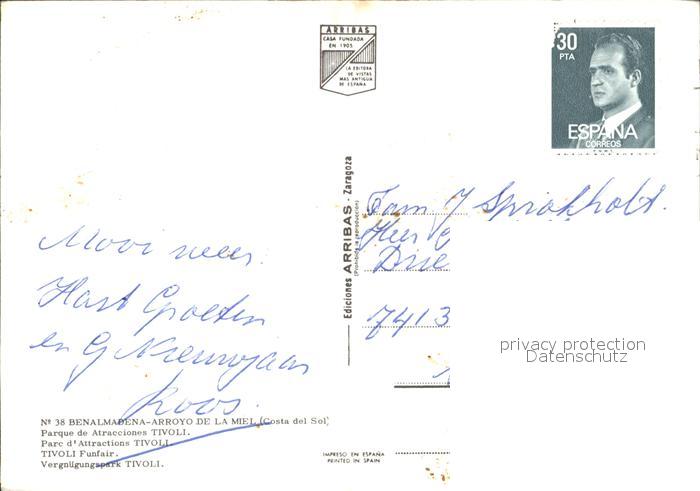 ARRIBAS
CASA FUNDADA
EN 1905
LA EDITORA
DE VISTAS
MAS ANTIGUA
DE ESPAÑA
30
PTA
ESPAÑA
CORREOS
Mooi weer.
Hart Groeten
en G Nieuwjaar
Koos.
Nº 38 BENALMADENA-ARROYO DE LA MIEL (Costa del Sol)
Parque de Atracciones TIVOLI.
Parc d'Attractions TIVOLI.
TIVOLI Funfair.
Vergnügungspark TIVOLI.
Ediciones ARRIBAS - Zaragoza
(Prohibida la reproducción)
Fam J Sprokholt.
Drie
7413
privacy protection
Datenschutz
IMPRESO EN ESPAÑA
PRINTED IN SPAIN